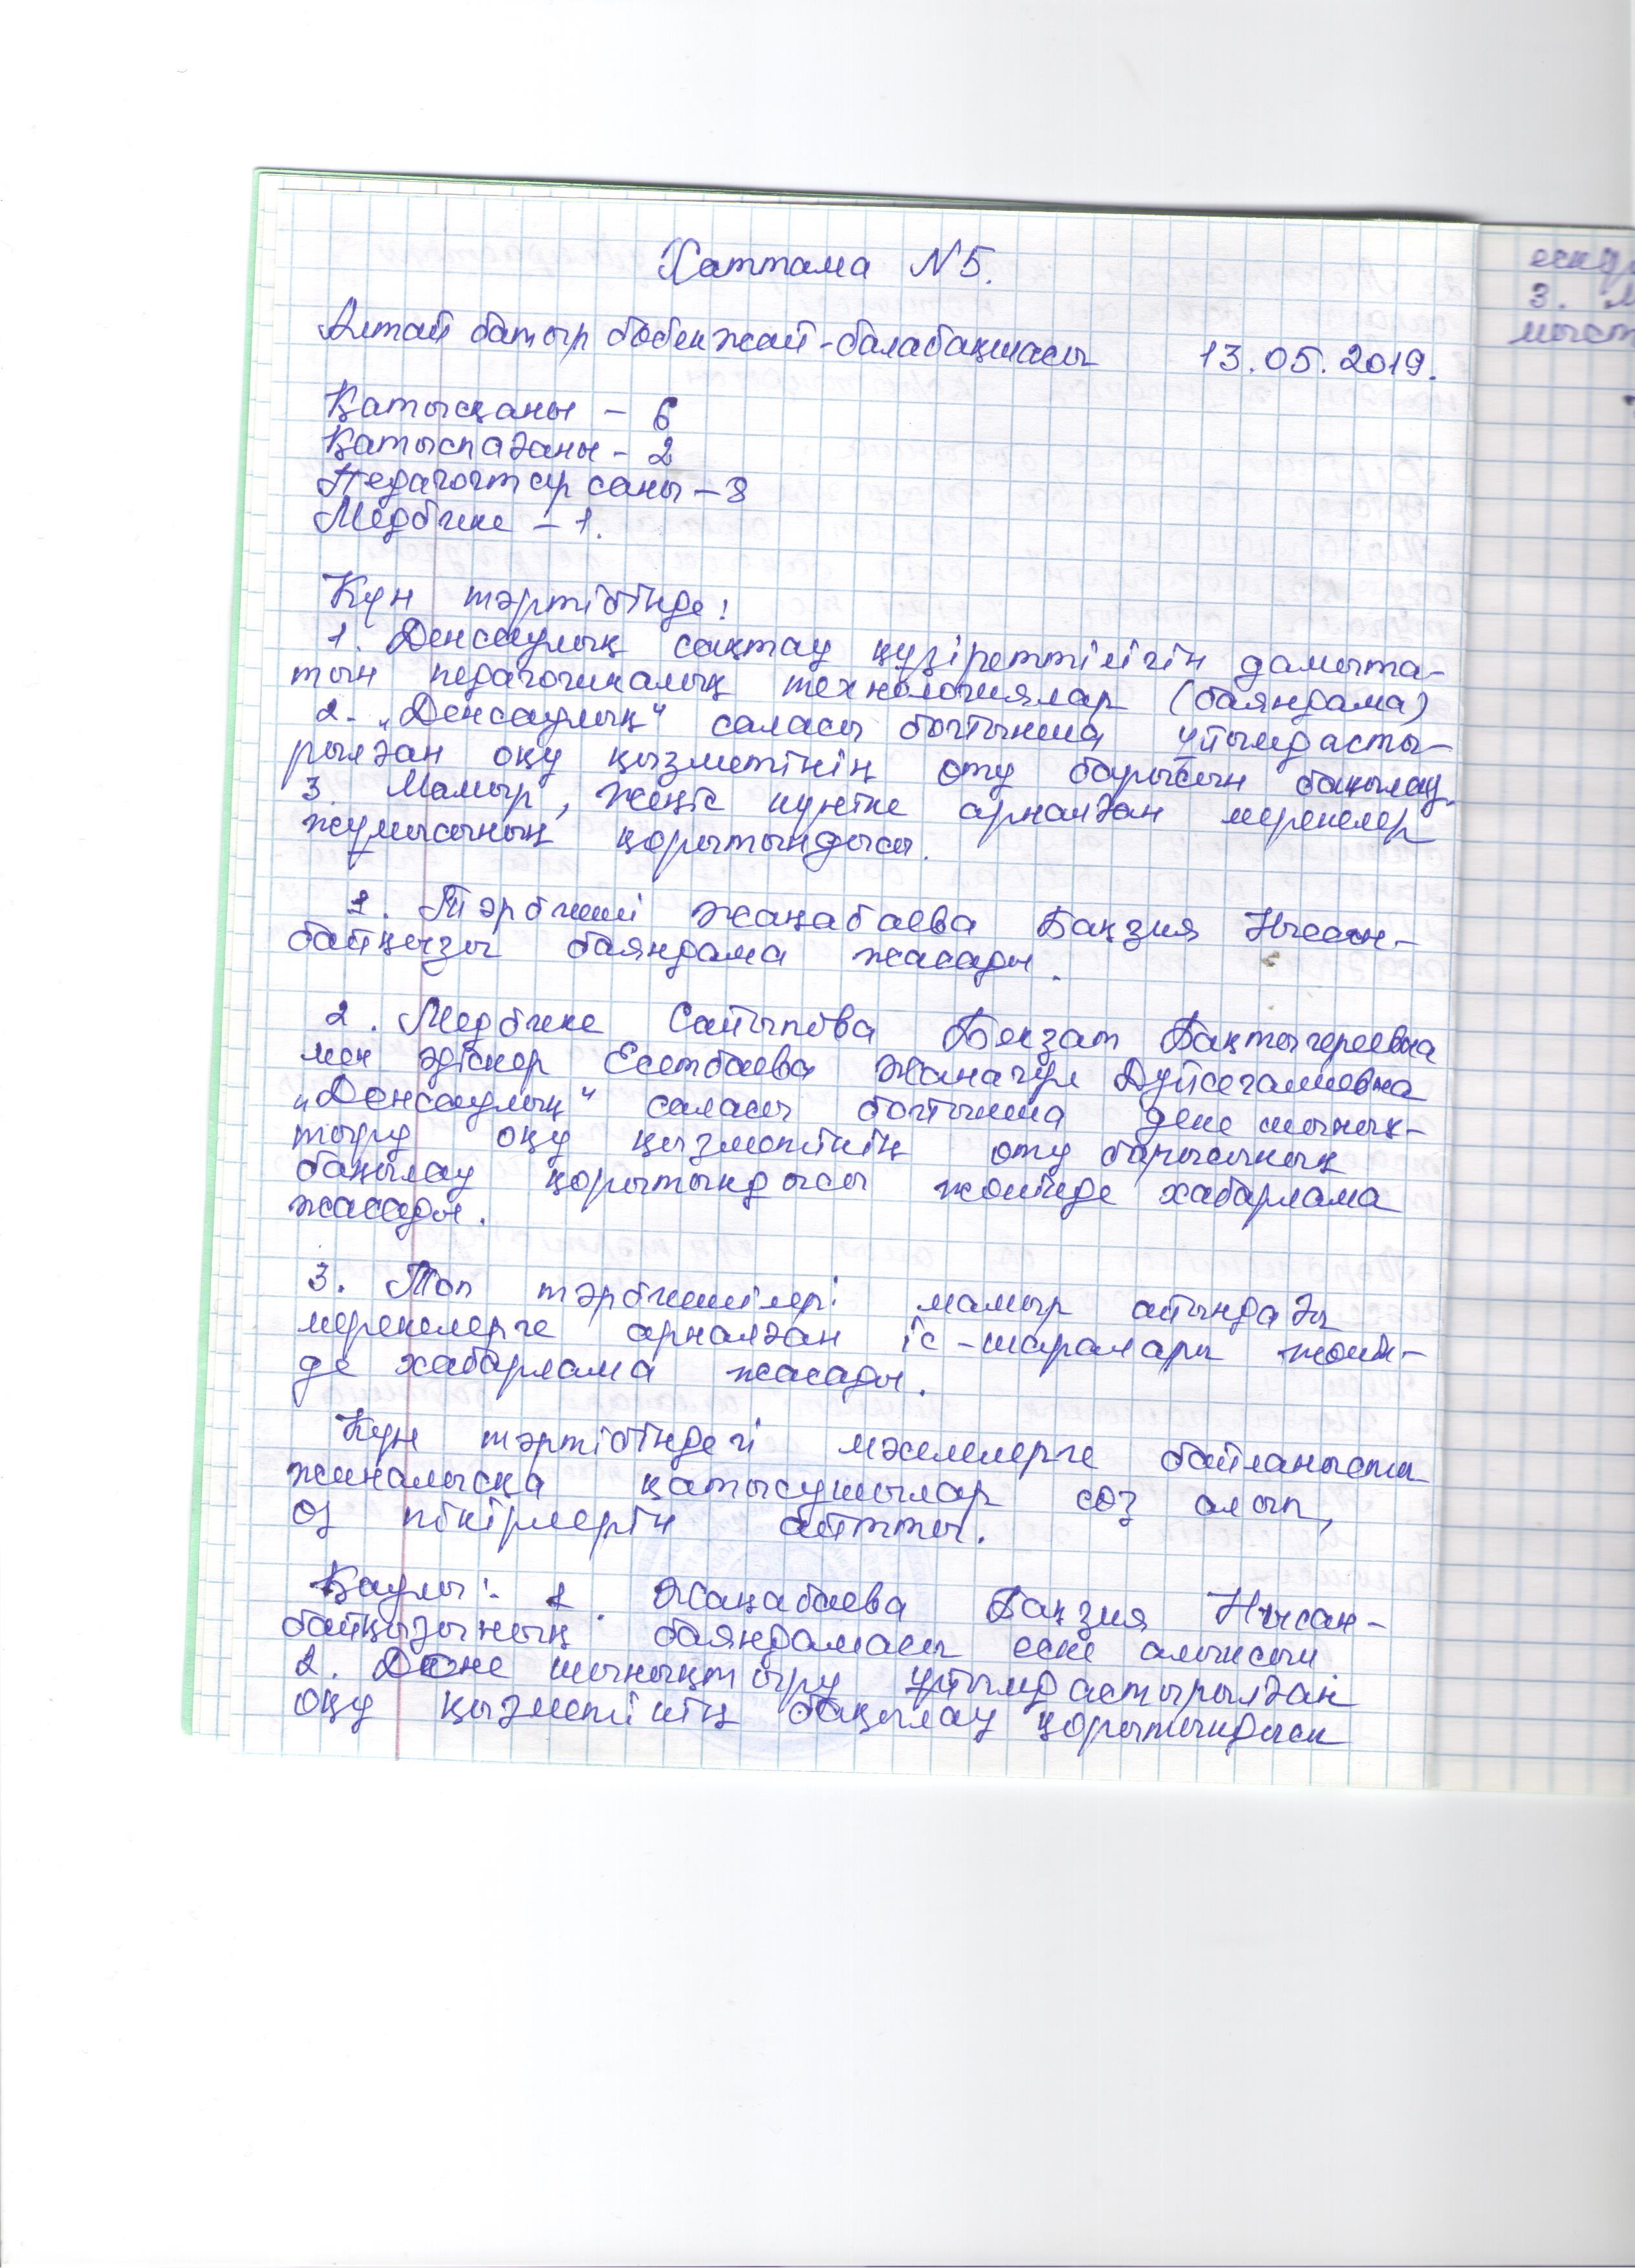 Хаттама N5.
Алтай батыр бөбекжай-балабақшасы 13.05.2019.
Қатысқаны – 6
Қатыспағаны – 2
Педагогтар саны – 8
Медбике – 1.
Күн тәртібінде:
1. Денсаулық сақтау құзіреттілігін дамыта-
тын педагогикалық технологиялар (баяндама)
2. „Денсаулық“ саласы бойынша ұйымдасты-
рылған оқу қызметінің өту барысын бақылау.
3. Мамыр, Жеңіс күніне арналған мерекелер
жұмысының қорытындысы.
1. Тәрбиеші Жаңабаева Бақзия Нысан-
байқызы баяндама жасады.
2. Медбике Сайыпова Бекзат Бақтыгереевна
мен әдіскер Есетбаева Жанагүл Дүйсегалиевна
„Денсаулық“ саласы бойынша дене шынық-
тыру оқу қызметінің өту барысының
бақылау қорытындысы жөнінде хабарлама
жасады.
3. Топ тәрбиешілері мамыр айындағы
мерекелерге арналған іс-шаралары жөнін-
де хабарлама жасады.
Күн тәртібіндегі мәселелерге байланысты
жиналысқа қатысушылар сөз алып,
өз пікірлерін айтты.
Қаулы: 1. Жаңабаева Бақзия Нысан-
байқызының баяндамасы еске алынсын.
2. Дене шынықтыру ұйымдастырылған
оқу қызметінің бақылау қорытындысы
3.